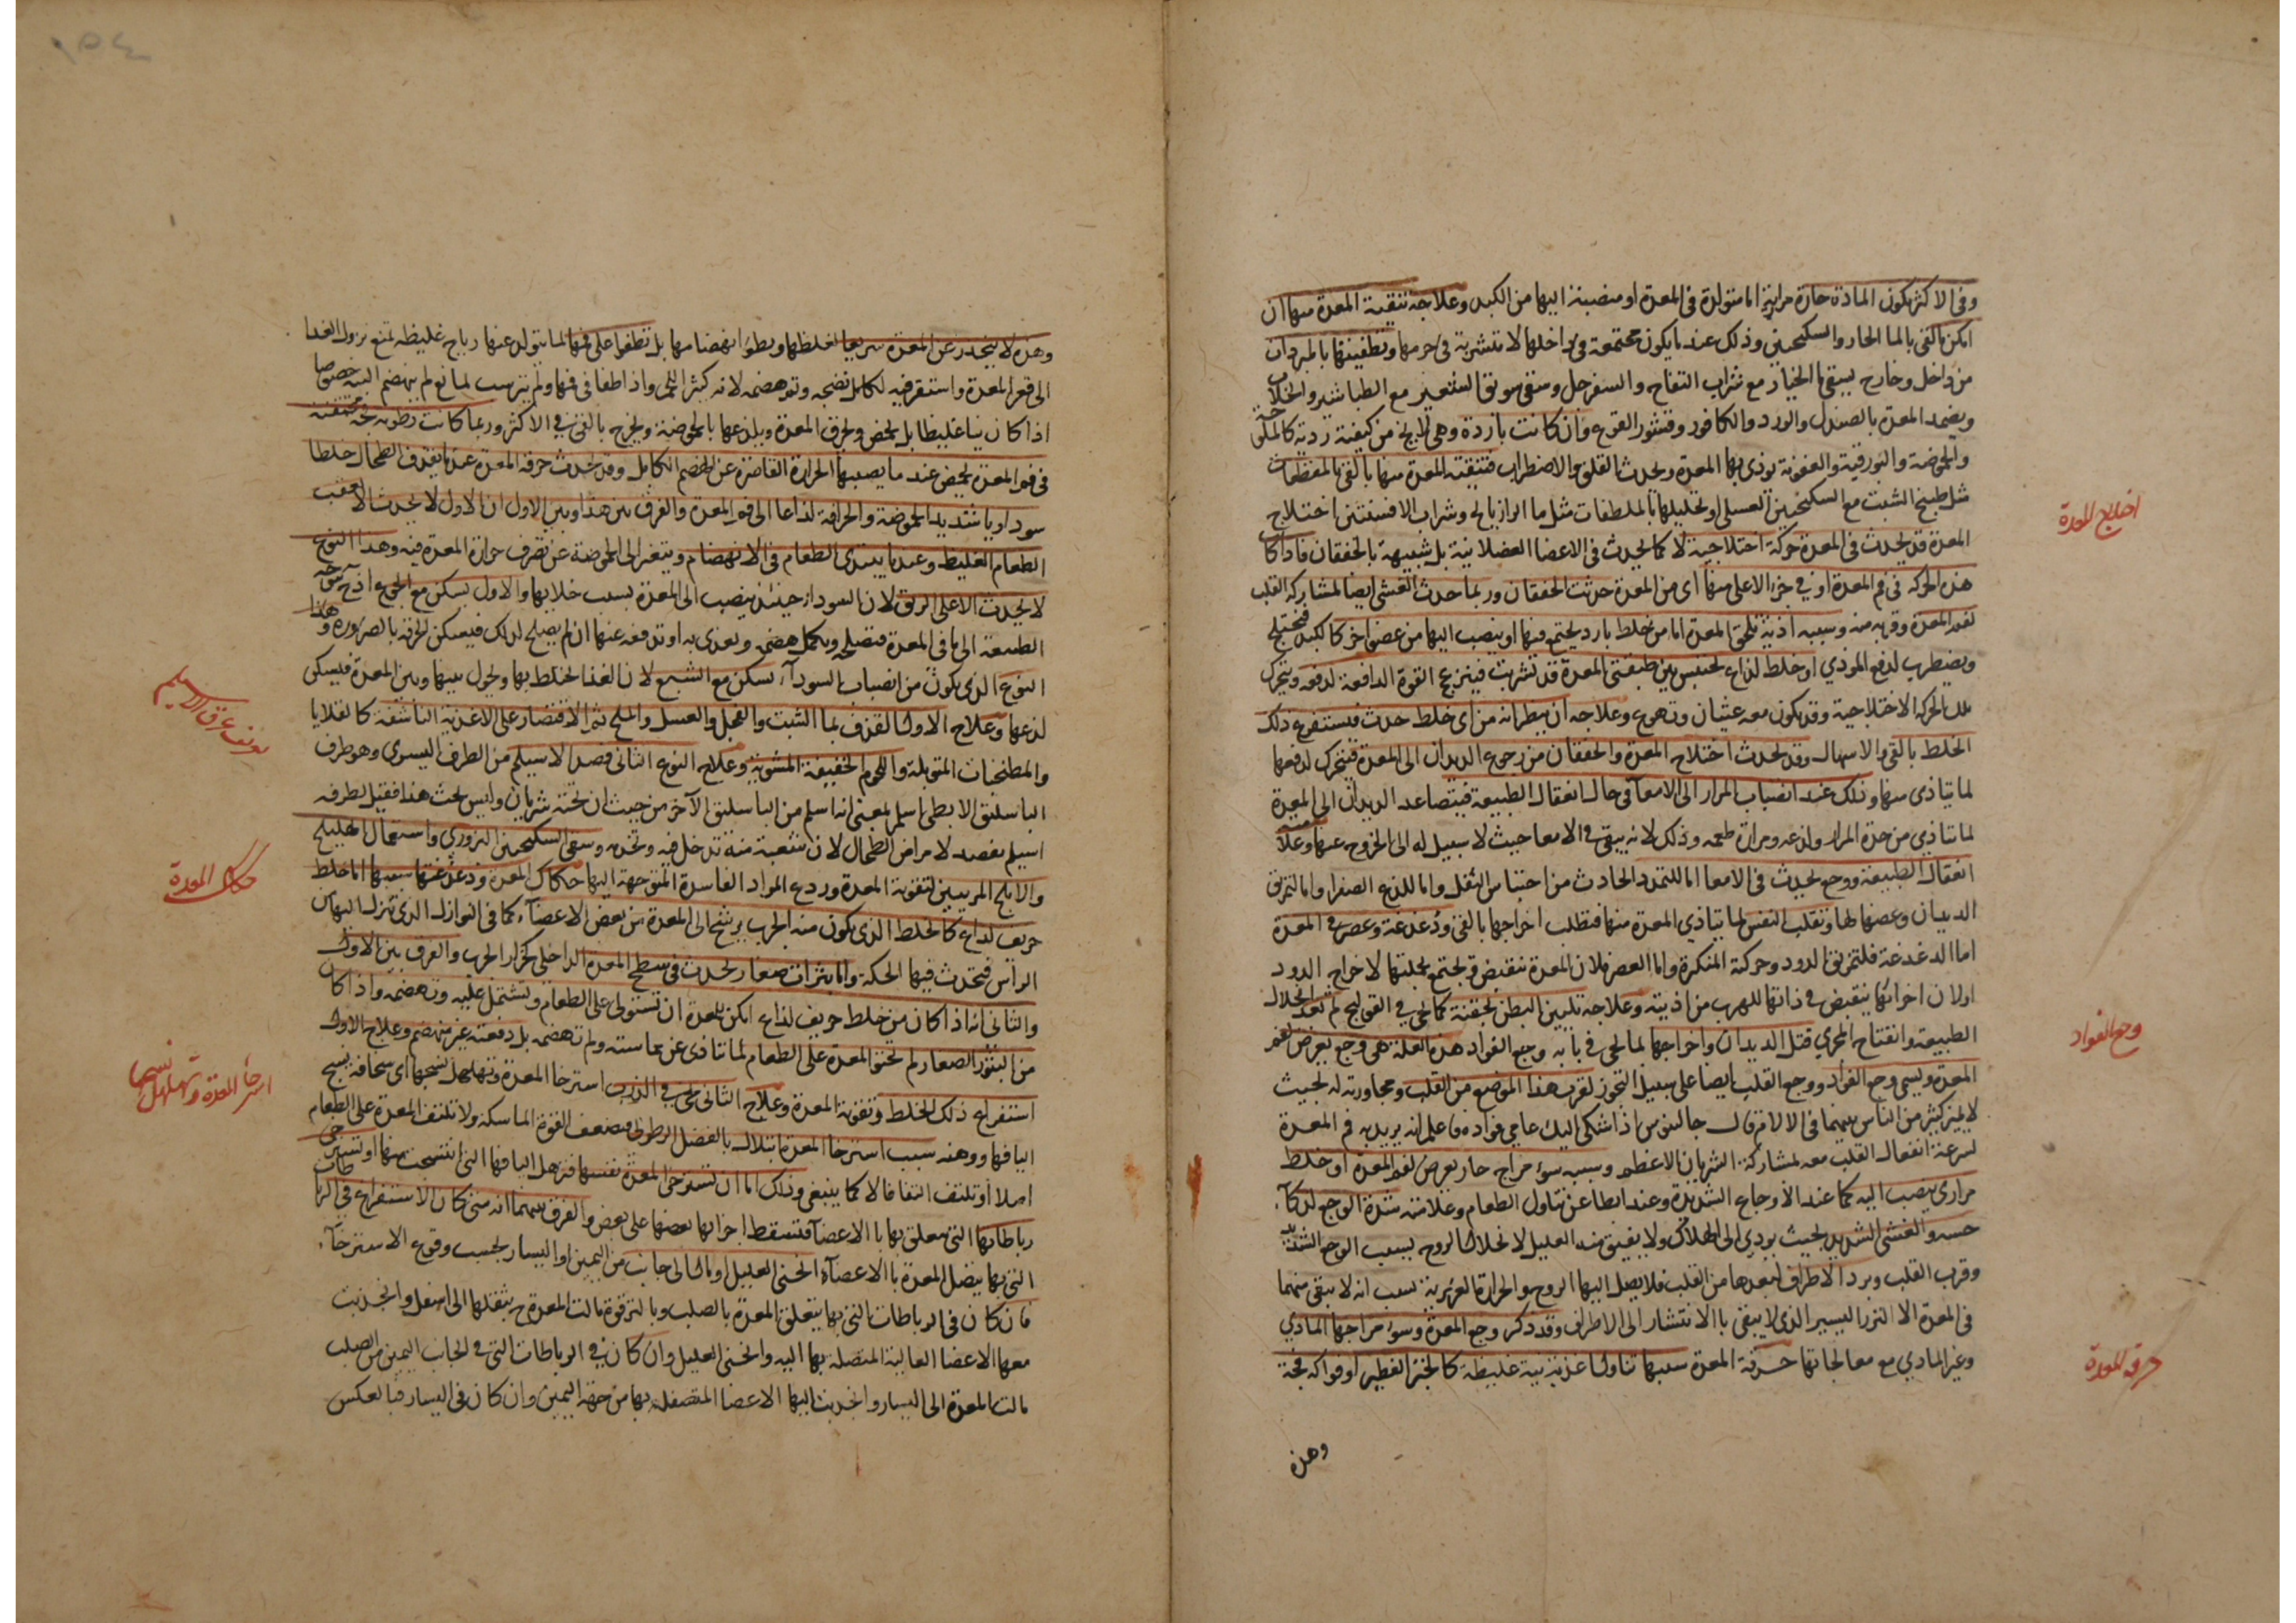 وفى الاكثر يكون المادة حارة مرارية اما متولدة فى المعدة او منصبة اليها من الكبد وعلاجه تنقية المعدة منها ان
امكن بالقى بالما الحار والسكنجبين وذلك عند ما يكون مجتمعة فى داخلها لا متشربة فى جرمها وتطفيتها بالمبردات
من داخل وخارج يسقى ما الخيار مع شراب التفاح والسفرجل وسقى سويق الشعير مع الطباشير والجلاب
ويضمد المعدة بالصندل والورد والكافور وقشور القرع وان كانت باردة وهى لا يخ من كيفية ردية كالملوحة
والحموضة والبورقية والعفونة يوذى بها المعدة ويحدث القلق والاضطراب فتنقية المعدة منها بالقى بالمقطعات
مثل طبيخ الشبت مع السكنجبين العسلى او تحليلها بالملطفات مثل ما الرازيانج وشراب الافسنتين اختلاج
المعدة قد يحدث فى المعدة حركة اختلاجية لا كما يحدث فى الاعضا العضلانية بل شبيهة بالخفقان فاذا كانت
هذه الحركة فى فم المعدة او فى جزء الاعلى منها اى من المعدة حدث الخفقان وربما حدث الغشى ايضا لمشاركة القلب
لفم المعدة وقربه منه وسببه اذية تلحق المعدة اما من خلط بارد يجتمع فيها او ينصب اليها من عضو اخر كالكبد فتختلج
ويضطرب لدفع الموذي او خلط لذاع يحتبس بين طبقتى المعدة قد تشربت فينزعج القوة الدافعة لدفعه ويتحرك
تلك الحركة الاختلاجية وقد يكون معه غثيان وتهوع وعلاجه ان ينظر انه من اى خلط حدث فيستفرغ ذلك
الخلط بالقى والاسهال وقد يحدث اختلاج المعدة والخفقان من رجوع الديدان الى المعدة فيتحرك لدفعها
لما يتاذى منها وذلك عند انصباب المرار الى الامعآ فى حال انعقال الطبيعة فيتصاعد الديدان الى المعدة
لما تتاذي من حدة المرار ولذعه ومرارة طعمه وذلك لانه يبقى فى الامعا حيث لا سبيل له الى الخروج عنها وعلامته
انعقال الطبيعة ووجع يحدث فى الامعا اما للتمدد الحادث من احتباس الثفل واما للذع الصفرا واما لتمزيق
الديدان وعضها لها وتقلب النفس لما يتاذي المعدة منها فتطلب اخراجها بالقى ودغدغة وعصر فى المعدة
اما الدغدغة فلتمزيق الدود وحركته المنكرة واما العصر فلان المعدة تنقبض وتجتمع بجملتها لاخراج الدود
اولان اجزائها ينقبض فى ذاتها للهرب من اذيته وعلاجه تليين البطن بحقنة كما يجي فى القولنج ثم بعد انحلال
الطبيعة وانفتاح المجري قتل الديدان واخراجها لما يجى فى بابه وجع الفواد هذه العلة هى وجع يعرض لفم
المعدة ويسمى وجع الفؤاد ووجع القلب ايضا على سبيل التجوز لقرب هذا الموضع من القلب ومجاورته له بحيث
لا يميز كثير من الناس بينهما فى الالام قال جالينوس اذا اشتكى اليك عامى فواده فاعلم انه يريد به فم المعدة
لسرعة انفعال القلب معه لمشاركة الشريان الاعظم وسببه سوء مزاج حار يعرض لفم المعدة او خلط
مرارى ينصب اليه كما عند الاوجاع الشديدة وعند ابطا عن تناول الطعام وعلامته شدة الوجع لذكآء
حسه والغشى الشديد بحيث يودي الى الهلاك ولا يفيق منه العليل لانحلال الروح بسبب الوجع الشديد
وقرب القلب وبرد الاطراف لبعدها من القلب فلا يصل اليها الروح والحرارة الغريزية بسبب انه لا يبقى منهما
فى المعدة الا النزر اليسير الذى لا يبقى باالانتشار الى الاطراف وقد ذكر وجع المعدة وسوء مزاجها المادي
وغير المادي مع معالجاتها حرقة المعدة سببها تناول اغذية نية غليظة كالخبز الفطير او فواكه فجة
وهذه
اختلاج المعدة
وجع الفواد
حرقة المعدة
وهذه لا ينحدر عن المعدة سريعا لغلظها وبطؤ انهضامها بل تطفوا على فمها لما يتولد عنها رياح غليظة تمنع نزول الغدا
الى قعر المعدة واستقر فيه لكامل نضجه وتم هضمه لانه كثير اللحم واذا طفا فى فمها ولم يترسب لمانع لم ينهضم البتة خصوصا
اذا كان نيا غليظا بل يحمض ويحرق المعدة ويلذعها بالحموضة ويخرج بالقى فى الاكثر وربما كانت رطوبة فجة محتقنة
فى فم المعدة يحمض عند ما يصيبها الحرارة القاصرة عن الهضم الكامل وقد يحدث حرقة المعدة عند ما يقذف الطحال خلطا
سوداويا شديد الحموضة والحرافة لذاعا الى فم المعدة والفرق بين هذا وبين الاول ان الاول لا يحدث الا عقيب
الطعام الغليظ وعند ما يبتدى الطعام فى الانهضام ويتغير الى الحموضة عن تصرف حرارة المعدة فيه وهذا النوع
لا يحدث الا على الريق لان السودا حينئذ ينصب الى المعدة بسبب خلايها والاول يسكن مع الجوع اذ ح يتوجه
الطبيعة الى ما فى المعدة فتصلحه ويكمل هضمه ويغذى به او تدفعه عنها ان لم يصلح لذلك فيسكن الحرقة بالضرورة وهذا
النوع الذى يكون من انصباب السودآء يسكن مع الشبع لان الغذا يختلط بها ويحول بينها وبين المعدة فيسكن
لذعها وعلاج الاول القذف بما الشبت والفجل والعسل والملح ثم الاقتصار على الاغذية الناشفة كالقلايا
والمطنجنات المتوبلة واللحوم الخفيفة المشوية وعلاج النوع الثانى فصد الاسيلم من الطرف اليسرى وهو طرف
الباسليق الابطى باسلم بمعنى انه اسلم من الباسليق الآخر من حيث ان تحته شريان وليس تحت هذا فقيل لطرفه
اسيلم يفصد لامراض الطحال لان شعبة منه تدخل فيه وتخدمه وسقى السكنجبين البزوري واستعمال الهليلج
والاملج المربيين لتقوية المعدة وردع المواد الفاسدة المتوجهة اليها حكاك المعدة ودغدغتها سببها اما خلط
حريف لذاع كالخلط الذى يكون منه الجرب يرشح الى المعدة من بعض الاعضآء كما فى النوازل الذى تنزل اليها من
الرأس فيحدث فيها الحكة واما بثرات صغار يحدث فى سطح المعدة الداخل كخزار الجرب والفرق بين الاول
والثانى انه اذا كان من خلط حريف لذاع امكن للمعدة ان تستولى على الطعام وتشتمل عليه وتهضمه واذا كان
من البثور الصغار لم يحتو المعدة على الطعام لما تتاذى عن مماسته ولم تهضمه بل دفعته غير منهضم وعلاج الاول
استفراغ ذلك الخلط وتقوية المعدة وعلاج الثانى يجى فى الذرب استرخا المعدة وتهلهل نسجها اى سخافة نسج
اليافها ووهنه سبب استرخا المعدة ابتلال بالفضل الرطوبى فيضعف القوة الماسكة ولا تلتف المعدة على الطعام
اصلا او تلتف التفافا لا كما ينبغى وذلك اما ان تسترخى المعدة نفسها فترهل اليافها التى انتسجت منها او تسترخى
رباطاتها التى تتعلق بها باالاعضآ فتسقط اجزائها بعضها على بعض والفرق بينهما انه متى كان الاستفراغ فى الرباطات
التى بها يتصل المعدة باالاعضآء انحنى العليل او مال الى جانب من اليمين او اليسار بحسب وقوع الاسترخآء
فان كان فى الرباطات التى بها يتعلق المعدة بالصلب وبالترقوة مالت المعدة ح بثقلها الى اسفل وانجذبت
معها الاعضا العالية المتصلة بها اليه وانحنى العليل وان كان فى الرباطات التى فى الجانب اليمين من الصلب
مالت المعدة الى اليسار وانجذبت اليها الاعضا المتصلة بها من جهة اليمين وان كان فى اليسار فبالعكس
تعريف عرق الاسيلم
حكاك المعدة
استرخا المعدة وتهلهل نسجها